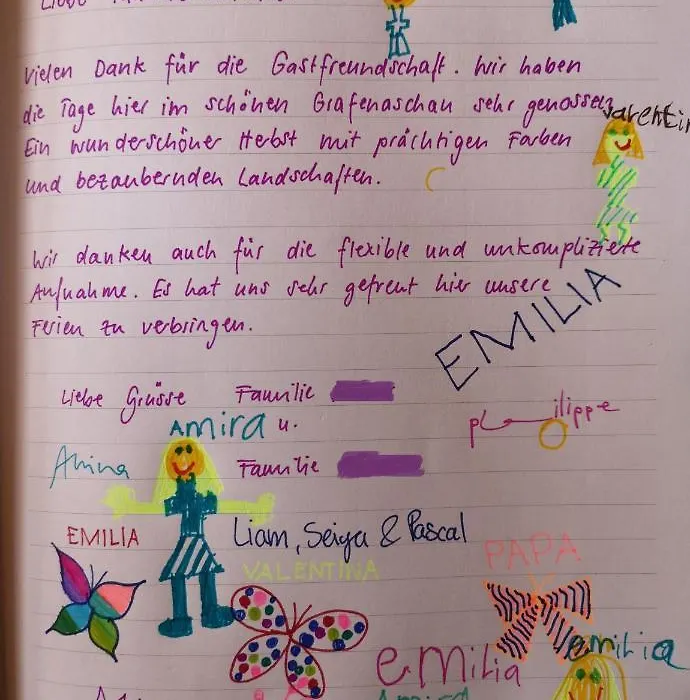 Vielen Dank für die Gastfreundschaft. Wir haben
die Tage hier im schönen Grafenaschau sehr genossen.
Valentin
Ein wunderschöner Herbst mit prächtigen Farben
und bezaubernden Landschaften.
Wir danken auch für die flexible und unkomplizierte
Aufnahme. Es hat uns sehr gefreut hier unsere
Ferien zu verbringen.
EMILIA
Liebe Grüsse Familie
Amira u.
Philippe
Amina
Familie
EMILIA
Liam, Seiya & Pascal
VALENTINA
PAPA
emilia
emilia
Amira